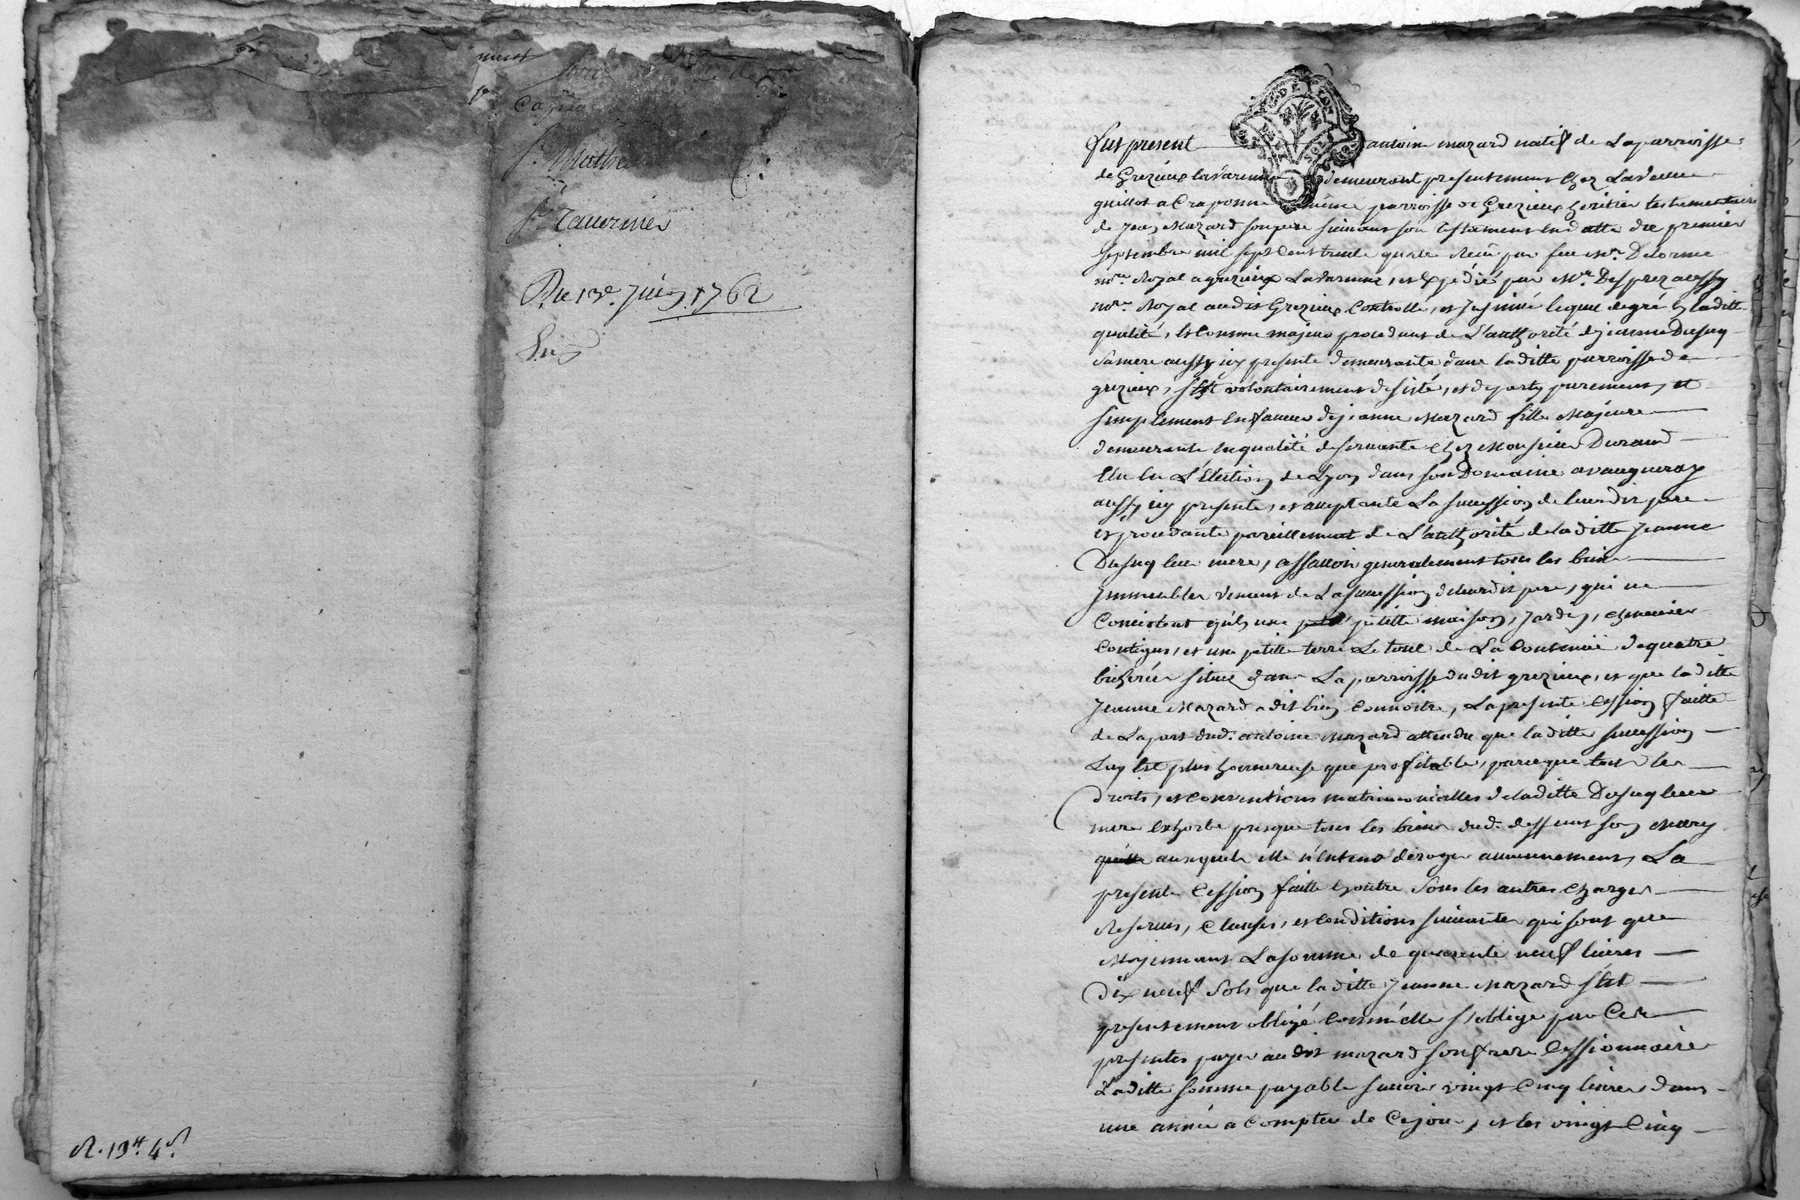 ment
Sr. Mathieu
Sr. Tavernier
Du 13e. Juin 1762
R. 19tt 4s.
Fut present antoine mazard natif de La parroisse
de Grezieux lavarenne demeurant presentement chez La veuve
guillot a Craponne même parroisse de Grezieux heritier testamentaire
de Jean Mazard son pere suivant son testament en datte du premier
septembre mil sept cent trente quatre Receu par feu Me. Delorme
nore. Royal a grezieux Lavarenne, et Expedié par Me. Desprez aussy
nore. Royal audit Grezieux Controllé, et Insinué lequel de gré En ladite
qualité, et comme majeur procedant de L'authorité de jeanne Dusuq
sa mere aussy icy presente demeurante dans laditte parroisse de
grezieux, s'est volontairement desisté, et departy purement, et
simplement en faveur de jeanne Mazard fille Majeure
demeurante en qualité de servante chez Monsieur Durand
Elu en L'Election de Lyon dans son Domaine a vaugneray
aussy icy presente, et acceptante La succession de leurdit pere
et procedante pareillement de L'authorité de laditte Jeanne
Dusuq leur mere, assavoir generalement tous les biens
Immeubles venant de La succession de leurdit pere, qui ne
Consistent qu'en une petitte maison, Jardin, chenevier
Contigus, et une petitte terre Le tout de La Contenüe de quatre
bicherées situé dans La parroisse dudit grezieux, et que laditte
Jeanne Mazard a dit bien connoitre, La presente Cession faitte
de La part dud. antoine Mazard attendu que laditte succession
Luy est plus honnereuse que profitable, parceque tous les
droits, et conventions matrimonialles de laditte Dusuq leur
mere exhorbe presque tous les biens dud. deffunt son Mary
auxquels elle n'entend deroger aucunnement, La
presente Cession faitte En outre sous les autres charges
Reserves, Clauses, et conditions suivantes qui sont que
Moyennant La somme de quarente neuf livres
dix neuf sols que laditte Jeanne Mazard s'est
presentement obligé comme elle s'oblige par Ces
presentes payer audit mazard son frere Cessionnaire
Laditte somme payable savoir vingt cinq livres dans
une année a compter de Cejour, et les vingt Cinq